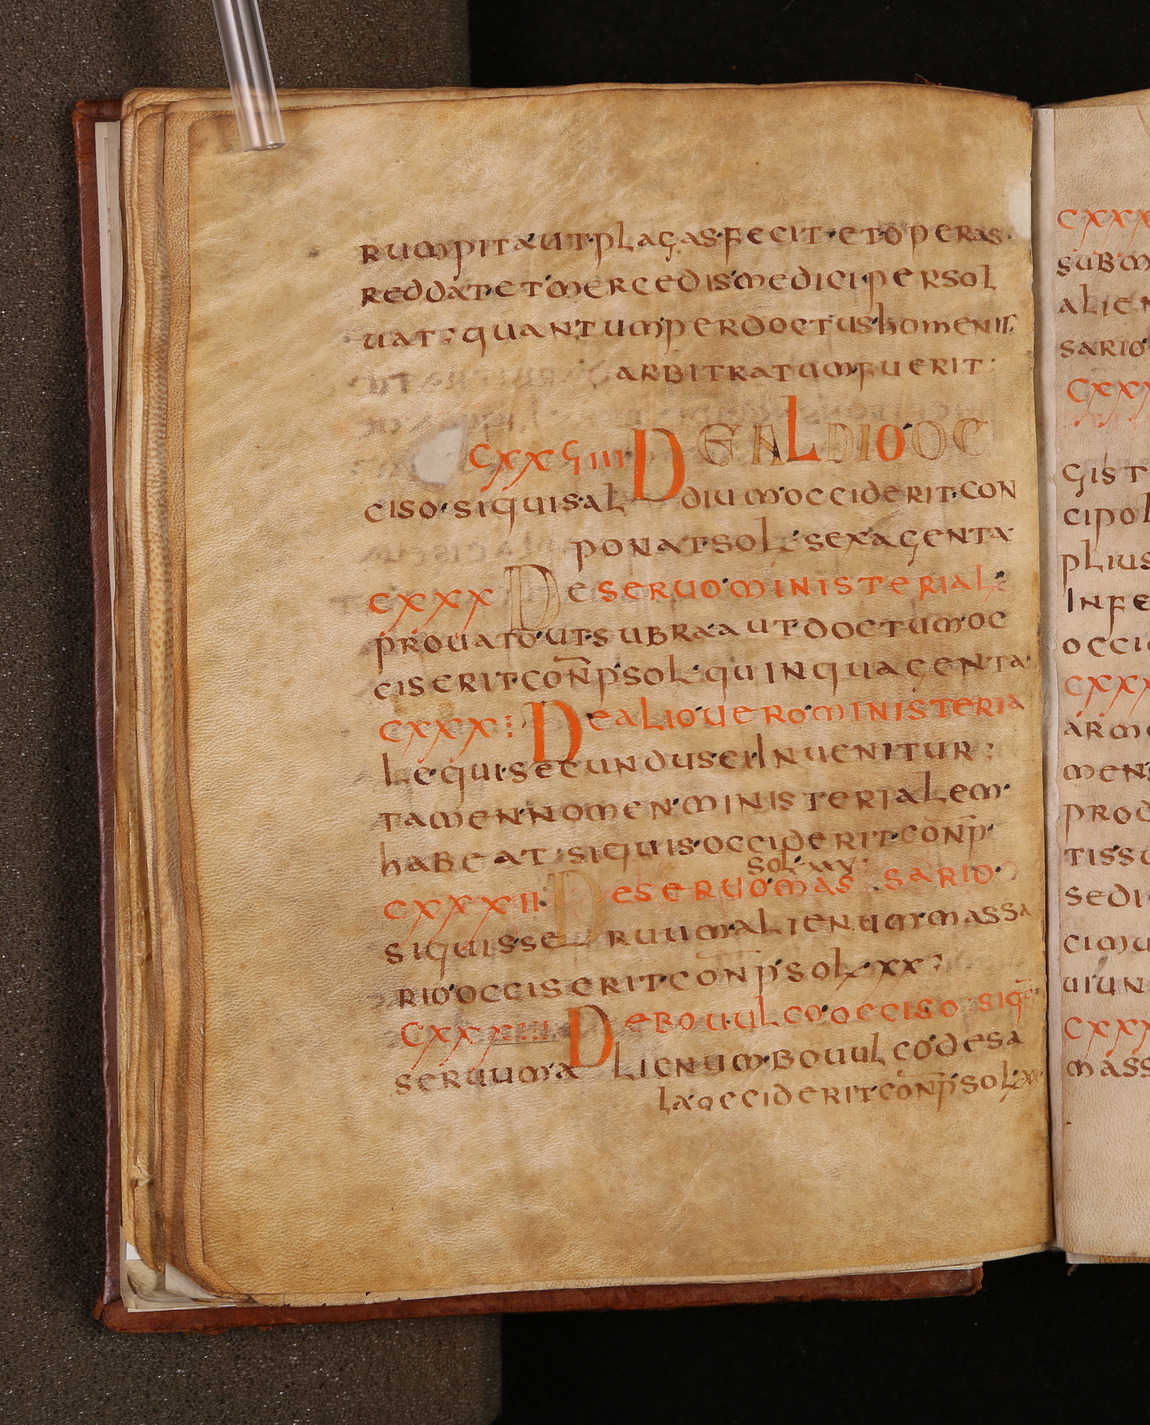 rumpit·aut·plagas·fecit·et·operas·
reddat·et·mercedis·medici·persol
uat· quantum·per·doctus·homenis·
arbitratum·fuerit·
CXXVIIII· DE ALDIO OC
CISO· siquis·aldium·occiderit·con
ponat·sol· sexagenta
CXXX De seruo ministerial·
prouato·ut·supra·aut·doctum·oc
ciserit·conp·sol·quinquagenta·
CXXX: De alio uero ministeria
le·qui·secundus·ei·Inuenitur:
tamen·nomen·ministerialem·
habeat·siquis·occiderit·conp·
sol· xxv·
CXXXII· De seruo mas sario·
siquis·seruum·alienum·massa
rio·occiserit·conp·sol· xx·
De bouulco occiso siq
seruum alienum·bouulco de sa
la·occiderit·conp·sol·
CXXX
subm
alien
sario
CXXX
gist
cipol
plius
Infe
occi
CXXX
arm
mens
prod
tissu
sedi
cimu
uiun
CXXX
mass